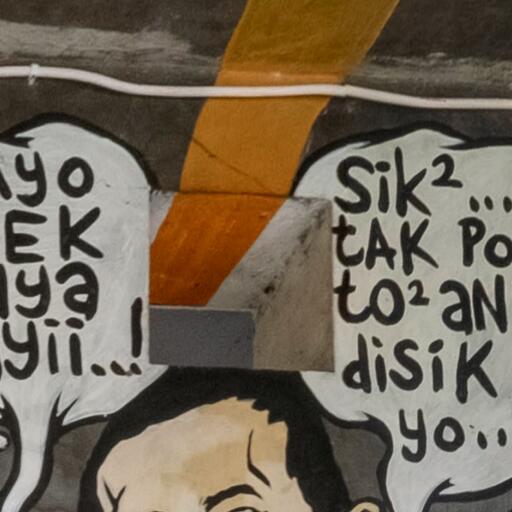 yo
EK
ya
yii...!
Sik²...
tAK Po
to²an
disik
yo..